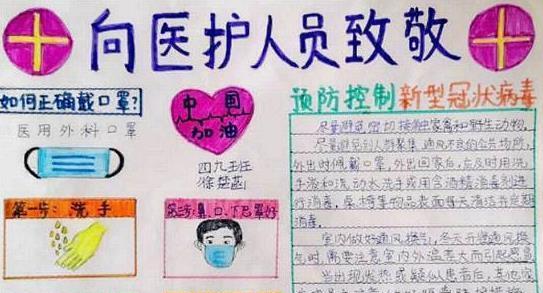 向医护人员致敬
如何正确戴口罩?
医用外科口罩
中国
加油
四九班
第一步: 洗手
鼻、口、下巴罩好
预防控制新型冠状病毒
尽量避免密切接触家禽和野生动物,
尽量避免到人群聚集、通风不良的公共场所,
外出时佩戴口罩,外出回家后,应及时用洗
手液和流动水洗手或用含酒精消毒剂进
行消毒,桌椅等物品表面每天清洁并定期
消毒。
室内做好通风换气,冬天开窗通风换
气时,需要注意室内外温差大而引起感冒
当出现发热或疑似患者后,其他家